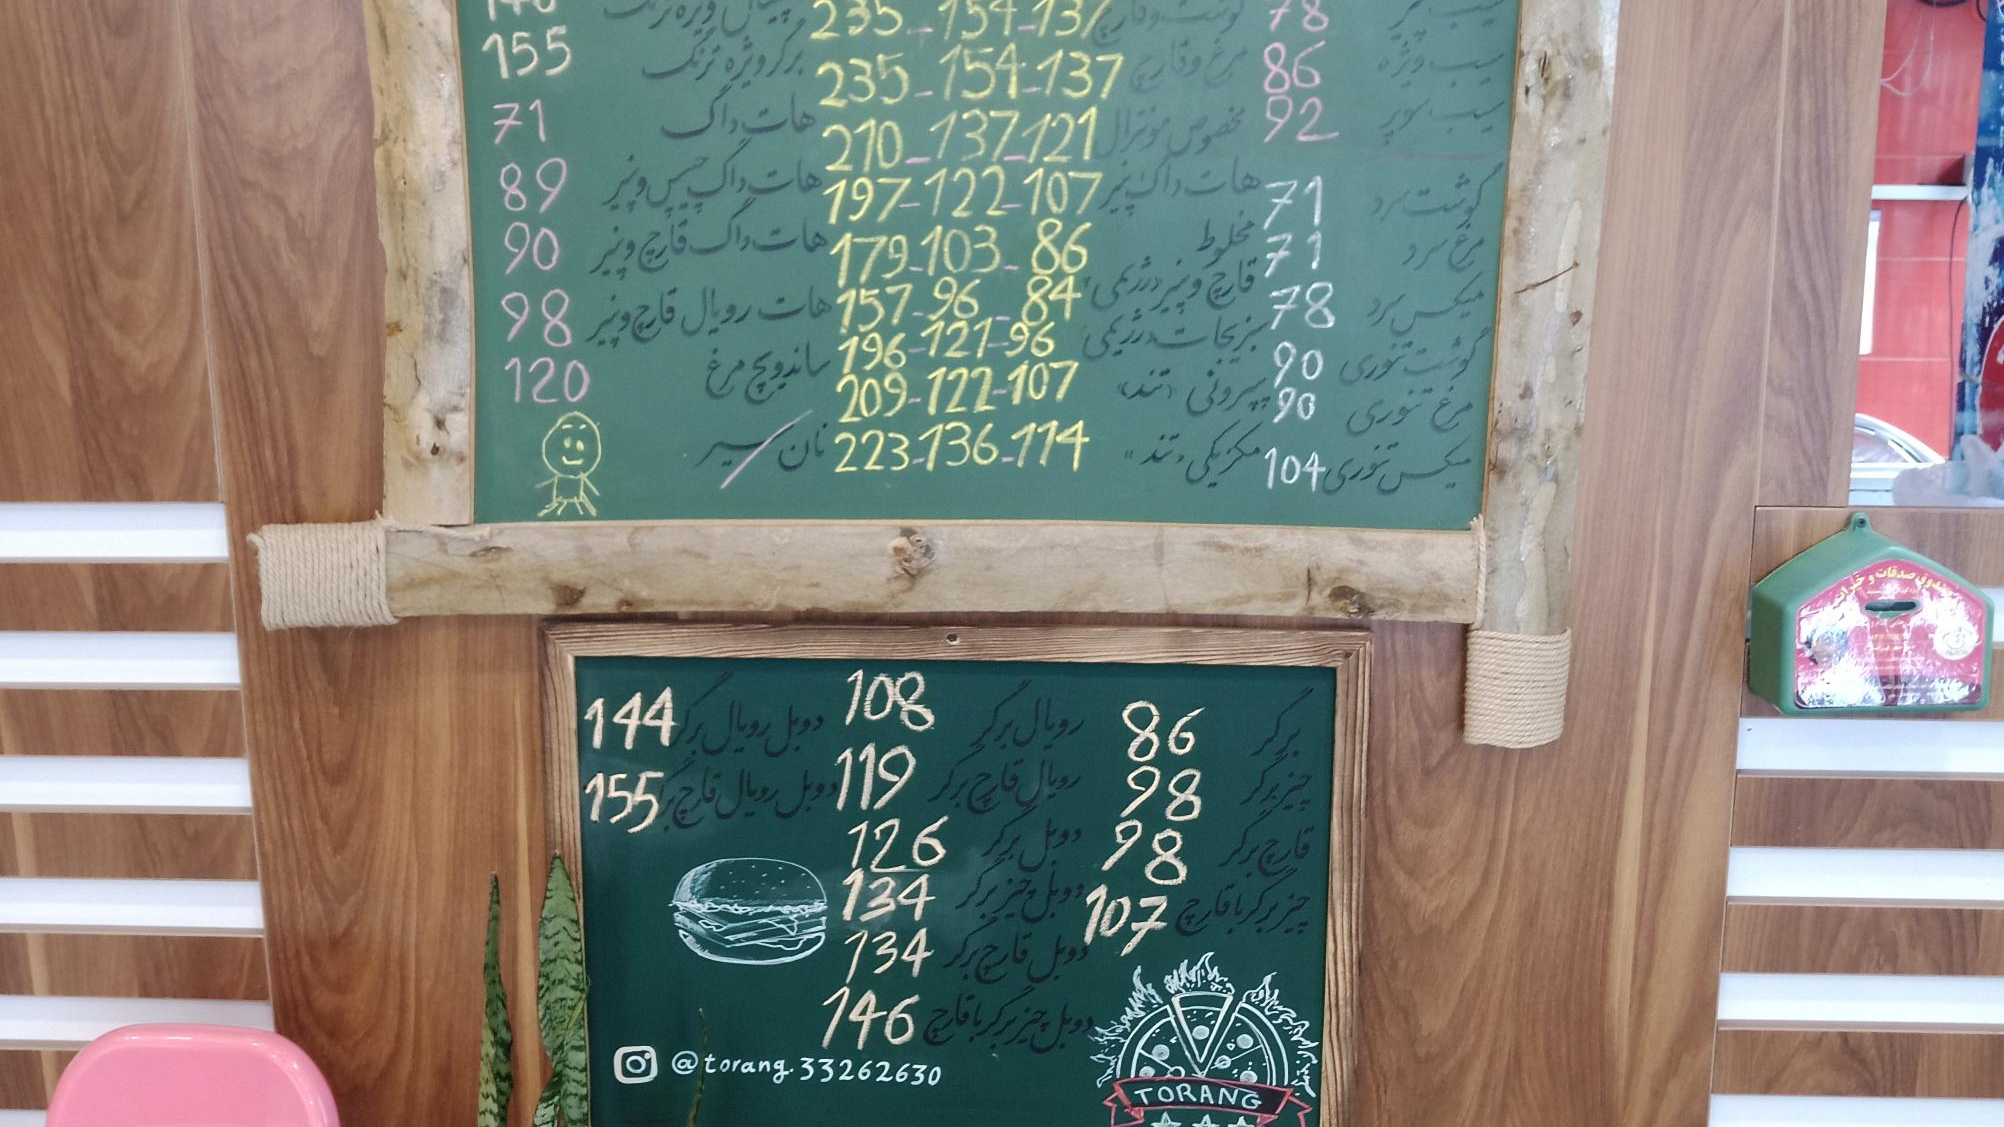 سیب پنیر 78 گوشت و قارچ 137-154-235 ویژه ترنگ
سیب ویژه 86 مرغ و قارچ 137-154-235 برگر ویژه ترنگ 155
سیب سوپر 92 مخصوص مونترال 121-137-210 هات داگ 71
گوشت سرد 71 هات داگ پنیر 107-122-197 هات داگ چیپس و پنیر 89
مرغ سرد 71 مخلوط 86-103-179 هات داگ قارچ و پنیر 90
میکس سرد 78 قارچ و پنیر «رژیمی» 84-96-157 هات رویال قارچ و پنیر 98
گوشت تنوری 90 سبزیجات «رژیمی» 96-121-196 ساندویچ مرغ 120
مرغ تنوری 90 پپرونی «تند» 107-122-209
میکس تنوری 104 مکزیکی «تند» 114-136-223 نان سیر
صندوق صدقات و خیرات
برگر 86 رویال برگر 108 دوبل رویال برگر 144
چیزبرگر 98 رویال قارچ برگر 119 دوبل رویال قارچ برگر 155
قارچ برگر 98 دوبل برگر 126
چیزبرگر با قارچ 107 دوبل چیزبرگر 134
دوبل قارچ برگر 134
دوبل چیزبرگر با قارچ 146
@torang.33262630
TORANG